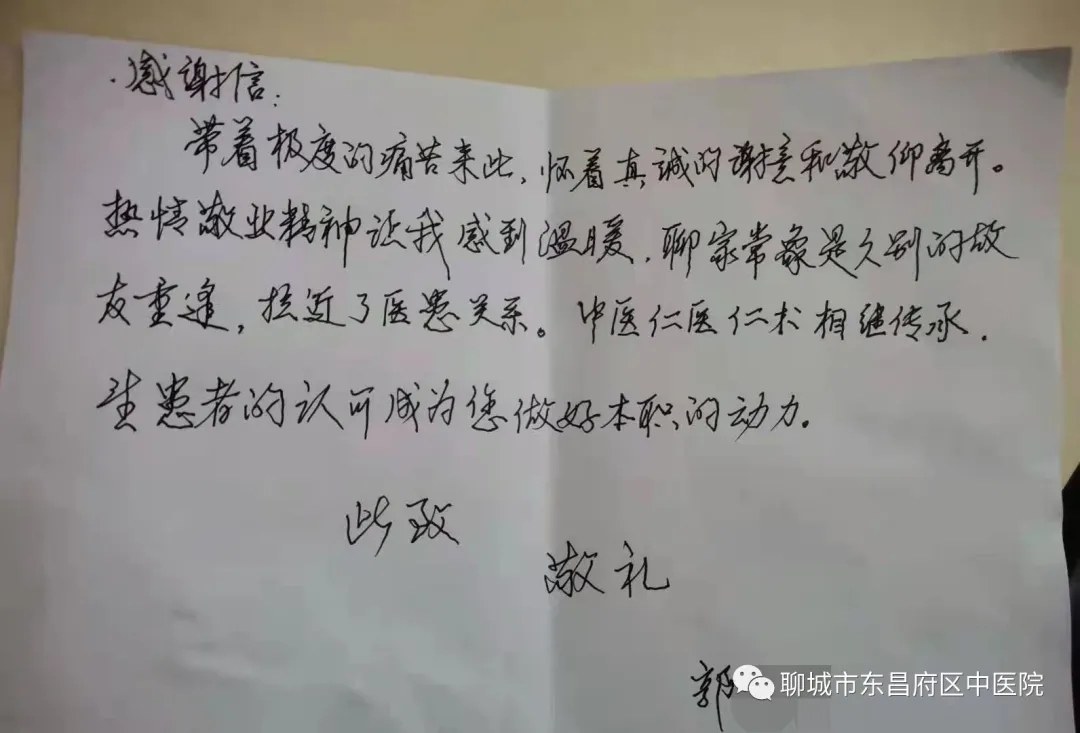 ·感谢信:
带着极度的痛苦来此,怀着真誠的谢意和敬仰离开。
热情敬业精神让我感到温暖.聊家常象是久别的故
友重逢,拉近了医患关系。中医仁医仁术相继传承.
让患者的认可成为您做好本职的动力。
此致
敬礼
郭
聊城市东昌府区中医院